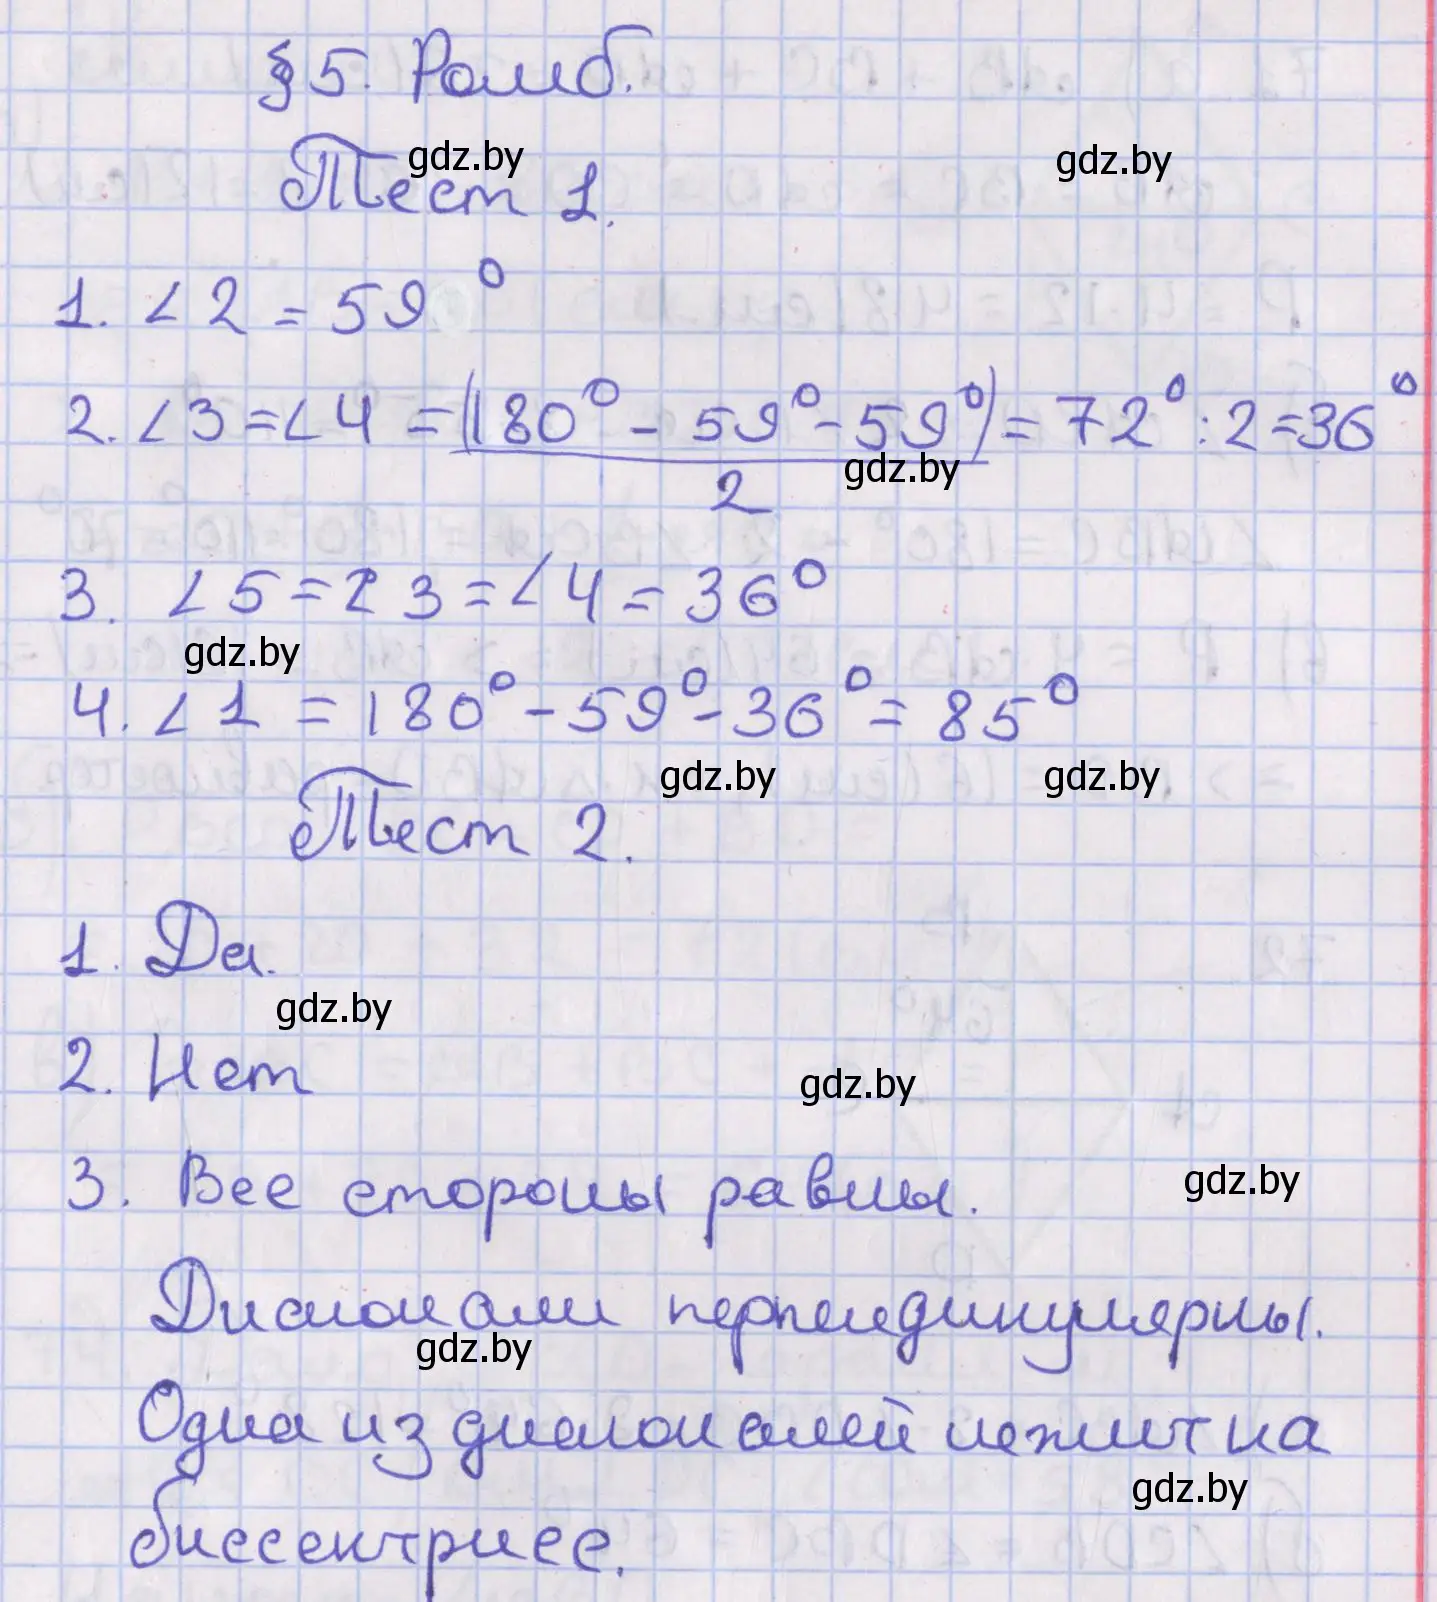 § 5. Ромб.
Тест 1.
gdz.by gdz.by
1. ∠2 = 59°
2. ∠3 = ∠4 = (180° - 59° - 59°)/2 = 72° : 2 = 36°
gdz.by
3. ∠5 = ∠3 = ∠4 = 36°
gdz.by
4. ∠1 = 180° - 59° - 36° = 85°
gdz.by gdz.by
Тест 2.
1. Да.
gdz.by
2. Нет
gdz.by
3. Все стороны равны.
gdz.by
Диагонали перпендикулярны.
gdz.by
Одна из диагоналей лежит на
gdz.by
биссектрисе.